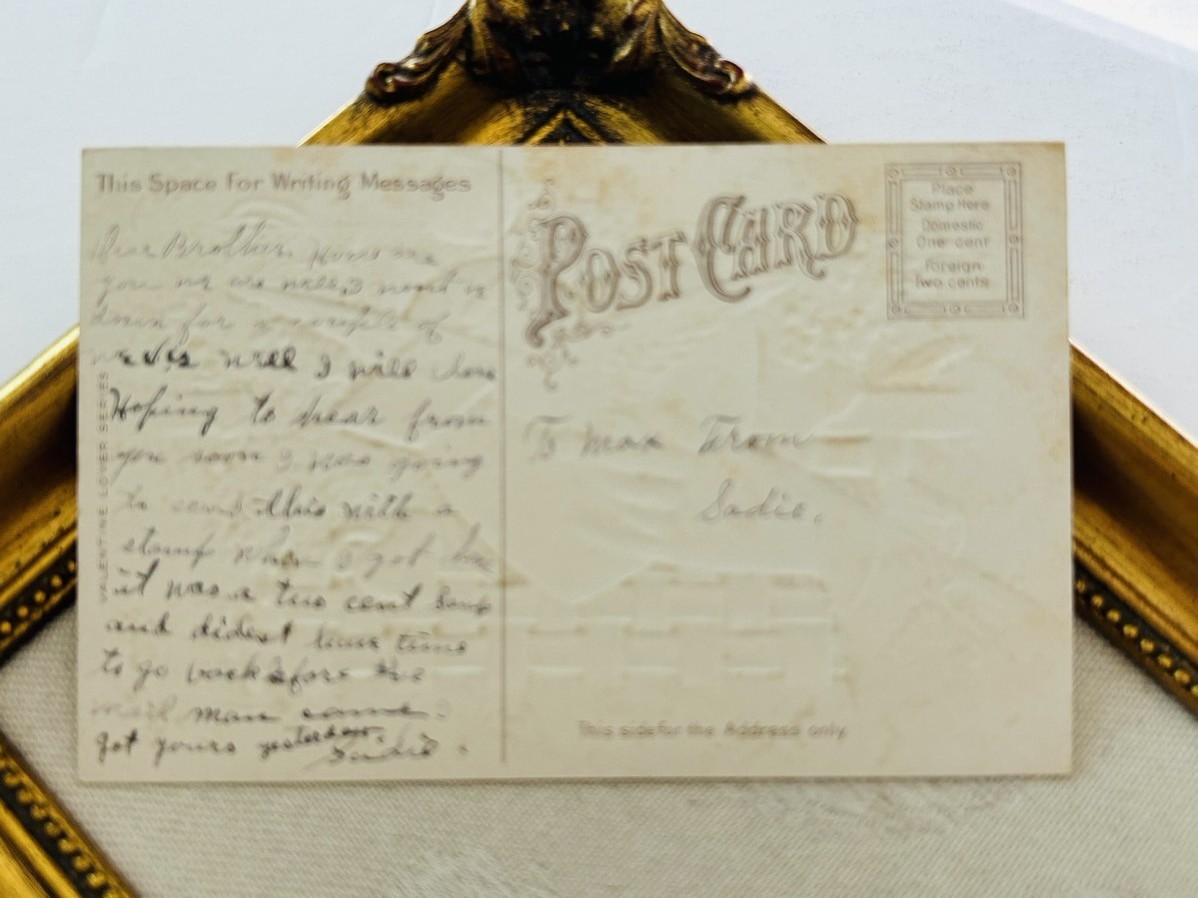 This Space For Writing Messages
Dear Brother. How are
you we are well, I
for a couple of
well I will close
Hoping to hear from
you soon I was going
to send this with a
stamp when I got
it was a two cent
and didest have time
to go back before the
mail man came.
got yours yesterday.
Sadie.
VALENTINE LOVER SERIES
POST CARD
Place
Stamp Here
Domestic
One cent
Foreign
Two cents
To Max From
Sadie.
This side for the Address only